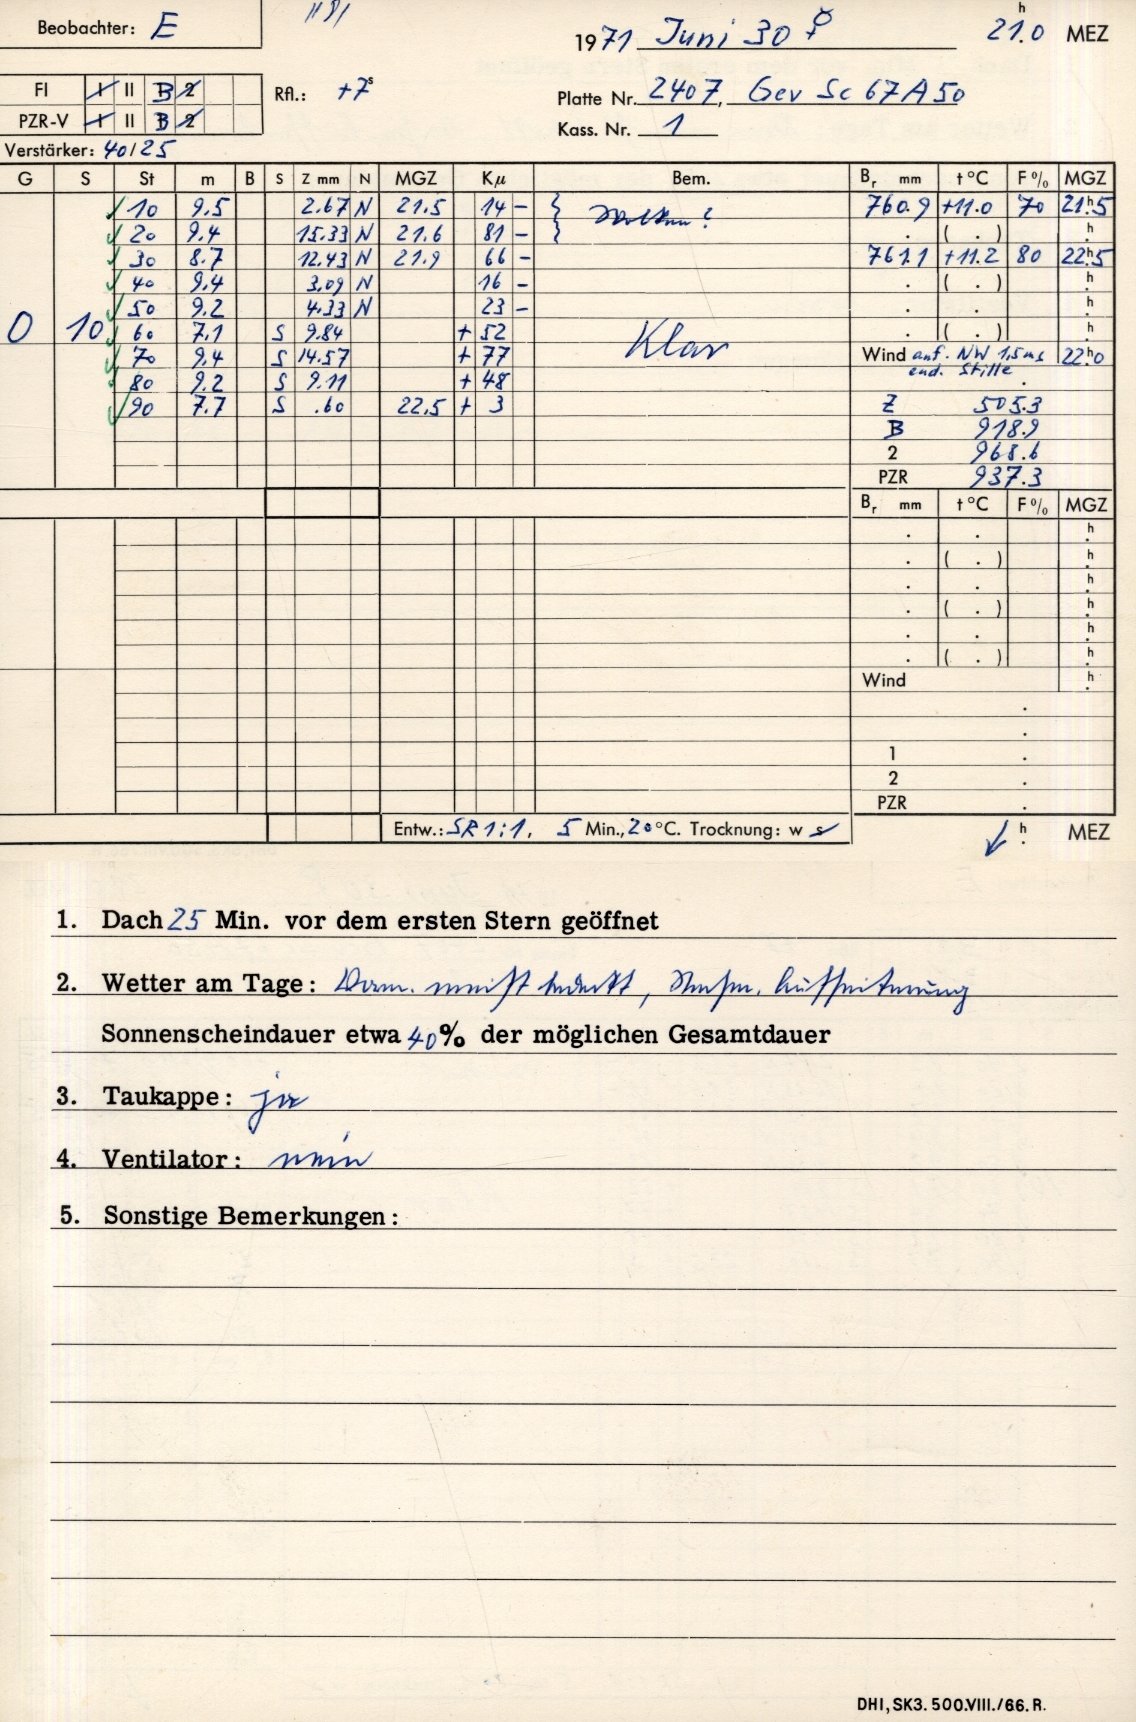 Beobachter: E
1971 Juni 30 ☿ 21.0 h MEZ
FI I II B 2 Rfl.: +7s
Platte Nr. 2407, Gev Sc 67A50
PZR-V I II B 2
Kass. Nr. 1
Verstärker: 40/25
G S St m B S Z mm N MGZ Kμ Bem. Br mm t °C F % MGZ
10 9.5 2.67 N 21.5 14 – Wolken? 760.9 +11.0 70 21h.5
20 9.4 15.33 N 21.6 81 – . ( . ) h.
30 8.7 12.43 N 21.9 66 – 761.1 +11.2 80 22h.5
40 9.4 3.09 N 16 – . ( . ) h.
50 9.2 4.33 N 23 – . . h.
0 10 60 7.1 S 9.84 + 52 Klar . ( . ) h.
70 9.4 S 14.57 + 77 Wind anf. NW 1,5 ms 22h.0
80 9.2 S 9.11 + 48 end. Stille
90 7.7 S .60 22.5 + 3 Z 505.3
B 918.9
2 968.6
PZR 937.3
Br mm t °C F % MGZ
. . h.
. ( . ) h.
. . h.
. ( . ) h.
. . h.
. ( . ) h.
Wind h.
1 .
2 .
PZR .
Entw.: SR 1:1, 5 Min., 20 °C. Trocknung: w s
h. MEZ
1. Dach 25 Min. vor dem ersten Stern geöffnet
2. Wetter am Tage: Vorm. meist bedeckt, Nachm. Aufheiterung
Sonnenscheindauer etwa 40% der möglichen Gesamtdauer
3. Taukappe: ja
4. Ventilator: nein
5. Sonstige Bemerkungen:
DHI, SK3. 500.VIII./66. R.